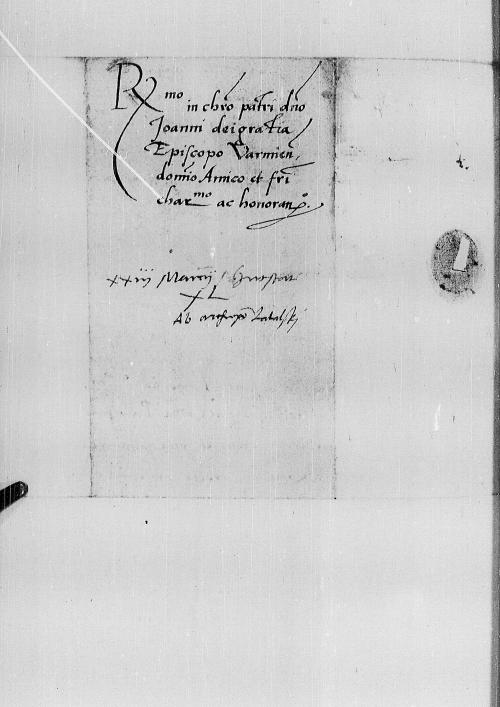 Rx mo in chro patri dno
Joanni dei gratia
Episcopo Varmien,
domio Amico et fri
char mo ac honoran o.
xxiii Marcij
XL
Ab archiepo